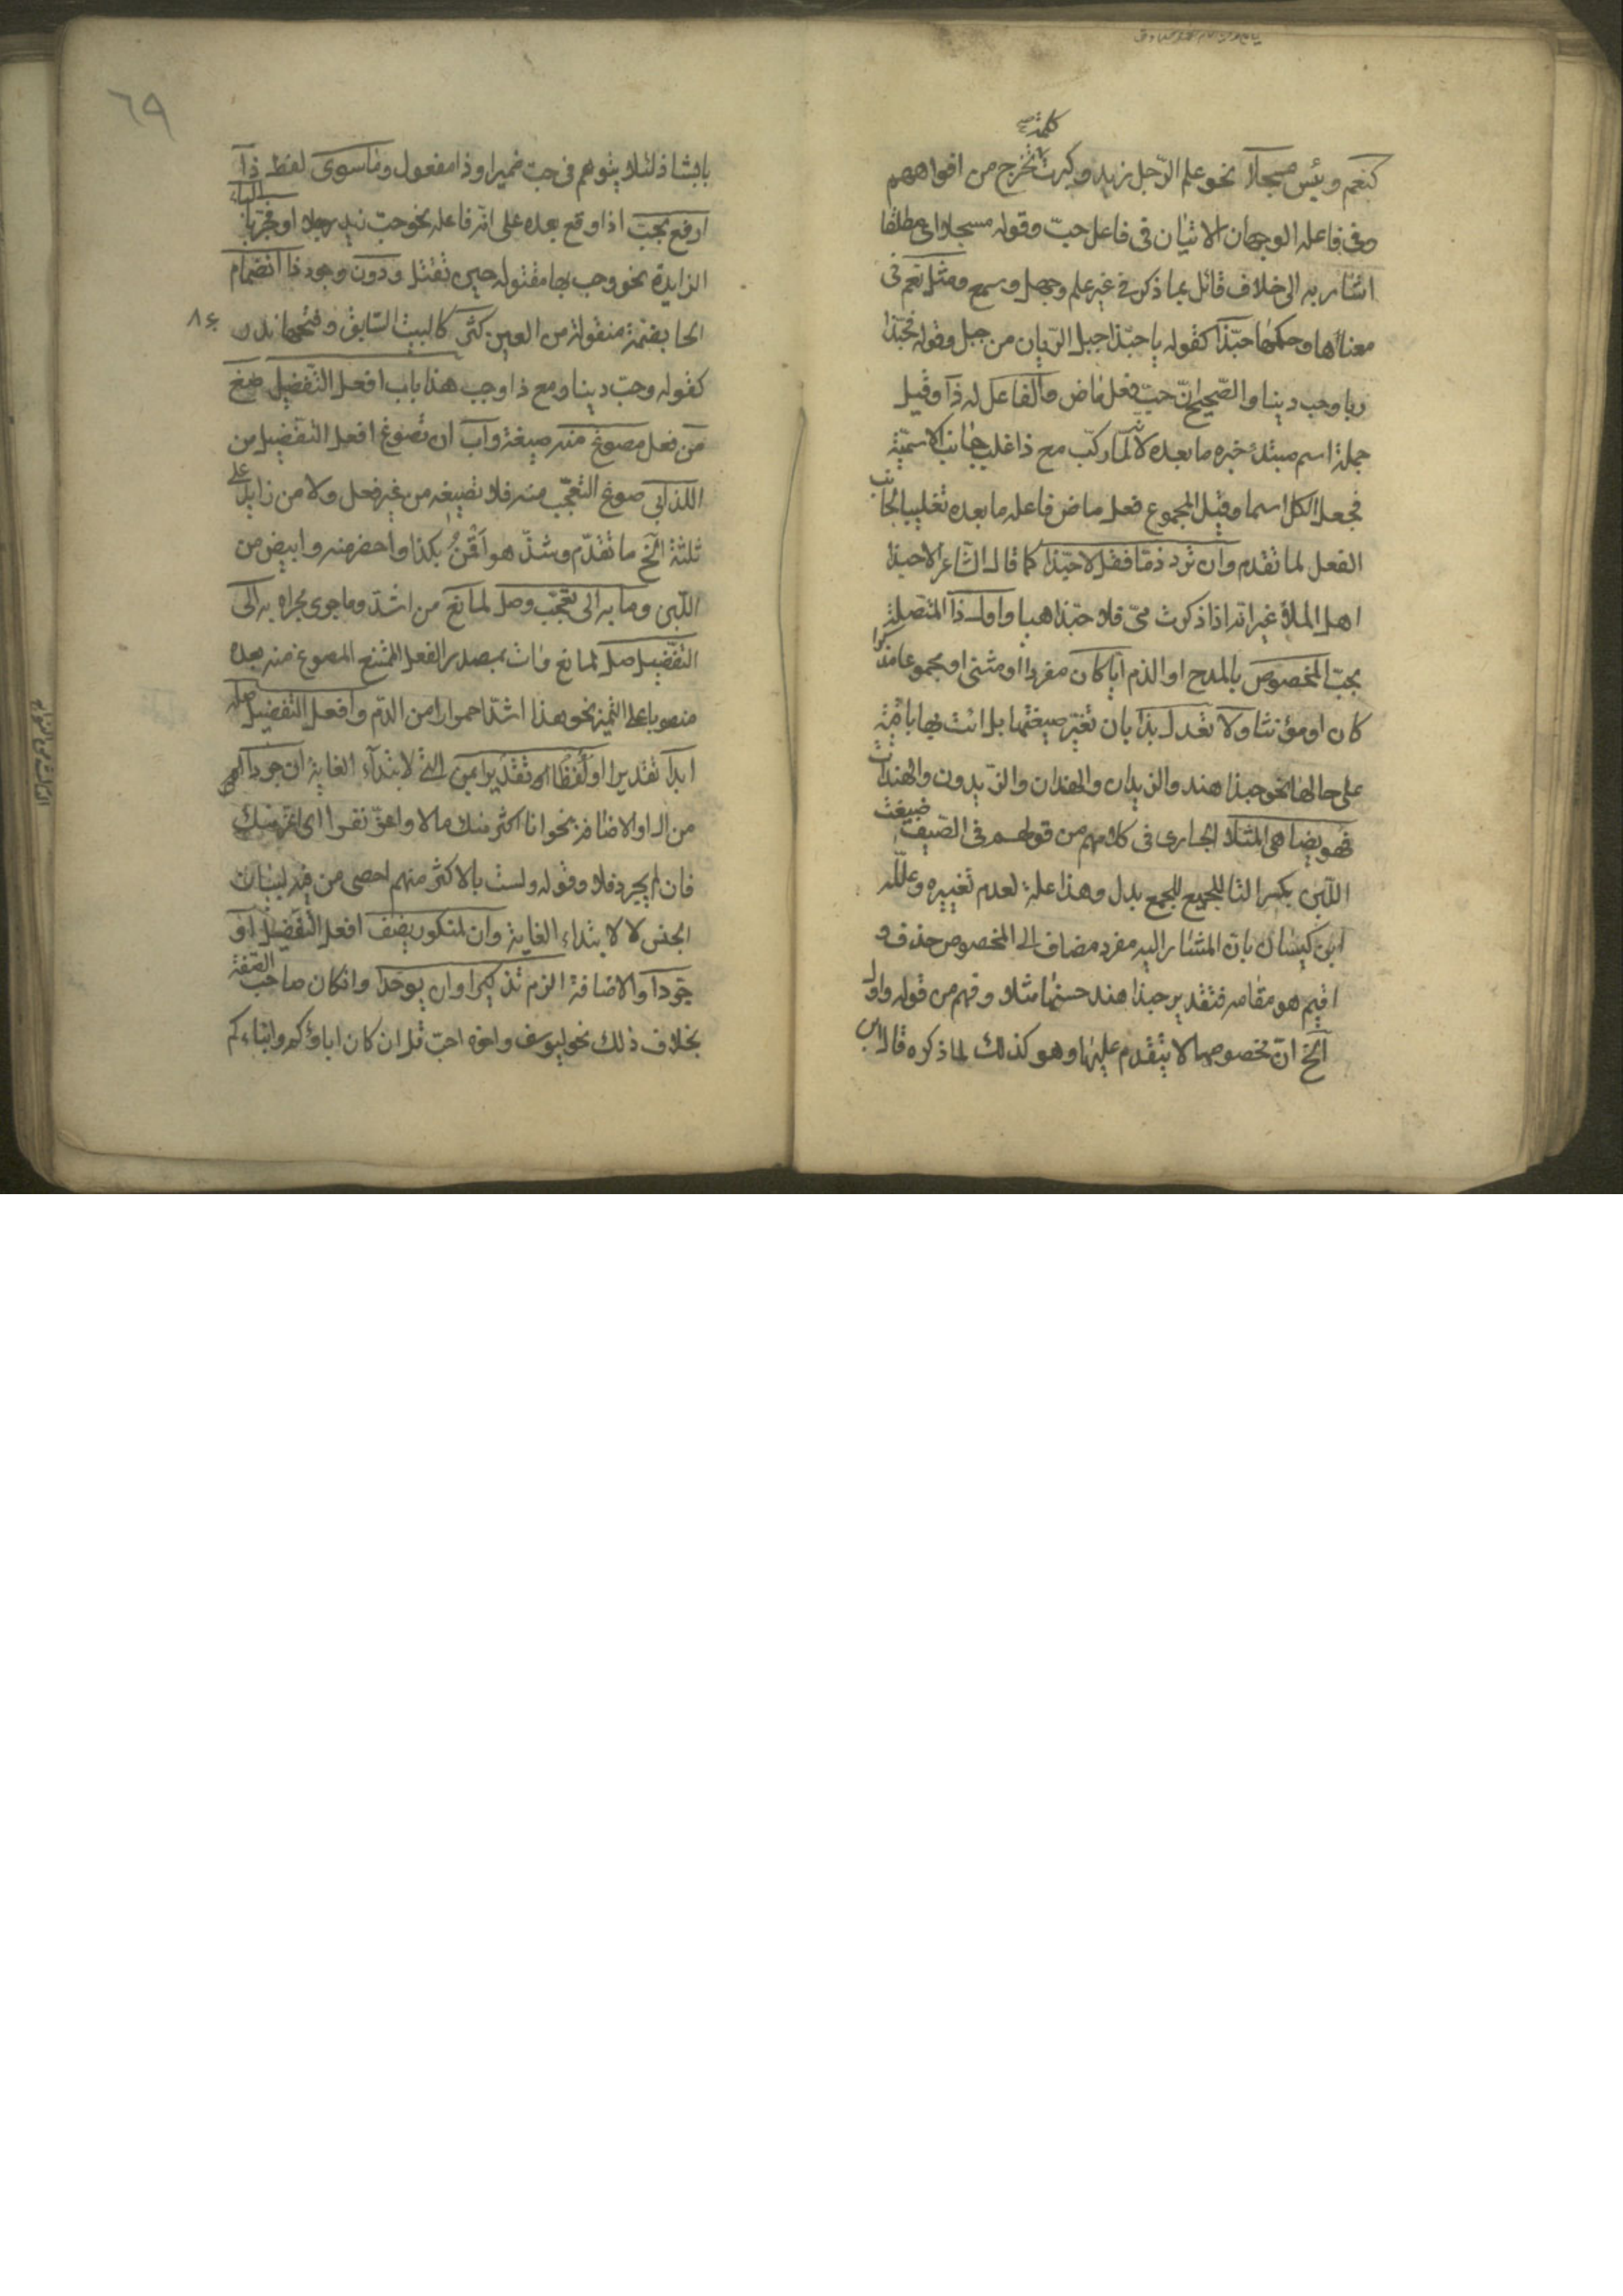 كلمة
كنعم وبئس مسجلا نحو علم الرّجل زيد وكبرت تخرج من افواههم
وفى فاعله الوجهان الاتيان فى فاعل حبّ وقوله مسجلا اى مطلقا
اشار به الى خلاف قائل بما ذكر فى غير علم وجهل وسمع ومثل نعم فى
معناها وحكمها حبّذا كقوله يا حبّذا جبل الريّان من جبل وقوله فحبّذا
ربا وحب دينا والصّحيح انّ حب فعل ماض والفاعل له ذا وقيل
جملة اسم مبتدء خبره ما بعده لانّه لمّا ركّب مع ذا غلب جانب الاسميّة
فجعل الكل اسما وقيل المجموع فعل ماض فاعله ما بعده تغليبا لجانب
الفعل لما تقدم وان ترد ذمّا فقل لا حبّذا كما قال الشاعر الا حبذا
اهل الملا غير انه اذا ذكرت مىّ فلا حبّذا هيا واول ذا المتصلة
بحبّ المخصوص بالمدح او الذم ايّا كان مفردا او مثنى او مجموعا مذكرا
كان او مؤنثا ولا تعدل بذا بان تغيّر صيغتها بل ائت بها باقية
على حالها نحو حبذا هند والزيدان والهندان والزيدون والهندات
فهو يضاهى المثلا الجارى فى كلامهم من قولهم فى الصّيف ضيعت
اللّبن بكسر التا للجميع للجمع بدل وهذا علة لعدم تغييره وعلله
ابن كيسان بان المشار اليه مفرد مضاف الى المخصوص حذف و
اقيم هو مقامه فتقدير حبذا هند حسنها مثلا وفهم من قوله واول
الخ انّ مخصوصها لا يتقدم عليها وهو كذلك لما ذكره قال ابن
٦٩
بابشاذ لئلا يتوهم فى حب ضميرا وذا مفعول وما سوى لفظ ذا
ارفع بحب اذا وقع بعده على انّه فاعله نحو حبّ زيد رجلا او فجرّ بالباء
الزايدة نحو وحب بها مقتولة حين تقتل ودون وجود ذا انضمام
الحا بضمة منقولة من العين كثر كالبيت السّابق وفتحها ندر
كقوله وحبّ دينا ومع ذا وجب هذا باب افعل التّفضيل صغ
من فعل مصوغ منه صيغة واب ان تصوغ افعل التّفضيل من
اللذ ابى صوغ التعجّب منه فلا تصيغه من غير فعل ولا من زايد على
ثلثة الخ ما تقدّم وشذّ هو اقمن بكذا واخصر منه وابيض من
اللّبن وما به الى تعجّب وصل لمانع من اشدّ وما جرى مجراه به الى
التفضيل صل لمانع وات بمصدر الفعل الممتنع المصوغ منه بعده
منصوبا على التميز نحو هذا اشدّ احمرارا من الدّم وافعل التّفضيل صله
ابدا تقديرا او لفظا بمن التى لابتداء الغاية ان جرّدا
من ال او الاضافة نحو انا اكثر منك مالا واعزّ نفرا اى اعز منك
فان لم يجرد فلا وقوله ولست بالاكثر منهم احصى من فيه لبيان
الجنس لا لابتداء الغاية وان لمنكور يضف افعل التّفضيل او
جرّدا والاضافة الزم تذكيرا وان يوحّدا وان كان صاحب الصّفة
بخلاف ذلك نحو ليوسف واخوه احبّ قل ان كان اباؤكم وابناءكم